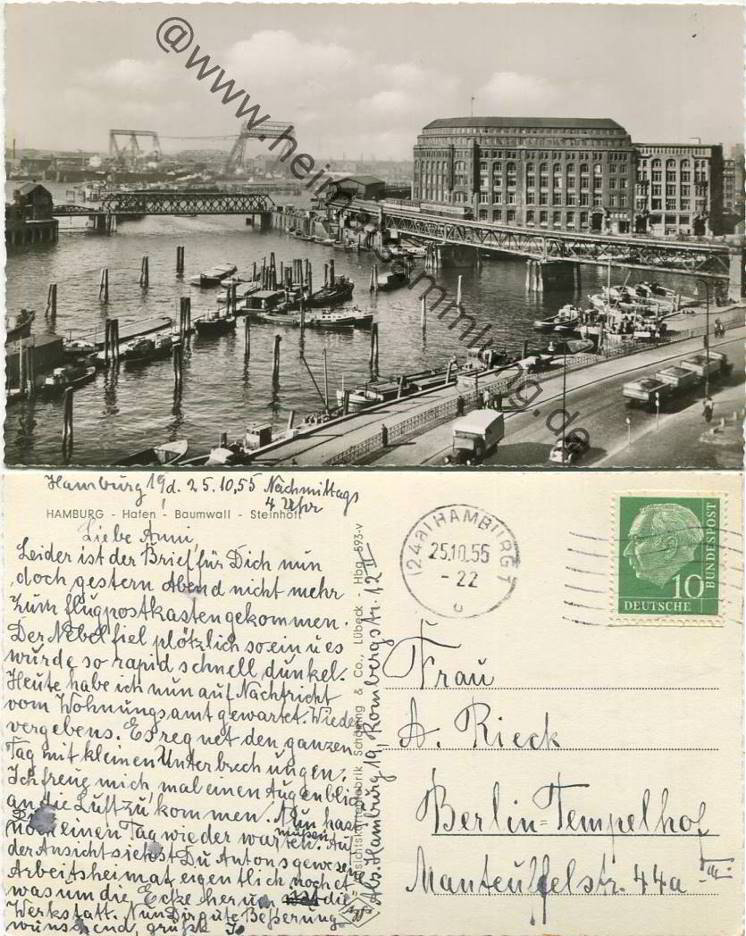 @www.heimatsammlung.de
Hamburg 19 d. 25.10.55 Nachmittags
4 Uhr
HAMBURG - Hafen - Baumwall - Steinhöft
Liebe Anni!
Leider ist der Brief für Dich nun
doch gestern Abend nicht mehr
zum flugpostkasten gekommen.
Der Nebel fiel plötzlich so ein u es
wurde so rapid schnell dunkel.
Heute habe ich nun auf Nachricht
vom Wohnungsamt gewartet. Wieder
vergebens. Es regnet den ganzen
Tag mit kleinen Unterbrechungen.
Ich freue mich mal einen Augenblick
an die Luft zu kommen. Nun hast
Du
noch einen Tag wieder warten müssen. Auf
der Ansicht siehst Du Antons gewesene
Arbeitsheimat eigentlich noch et
was um die Ecke herum die
Werkstatt. Nun Dir gute Beßerung
wünschend, grüßt
Ansichtskartenfabrik Schöning & Co., Lübeck · Hbg. 593-V
Abs. Hamburg 19, Rombergstr. 12 II
Agfa
(24a) HAMBURG 1
25.10.55
- 22
c
10
DEUTSCHE
BUNDESPOST
Frau
A. Rieck
Berlin-Tempelhof
Manteuffelstr. 44a